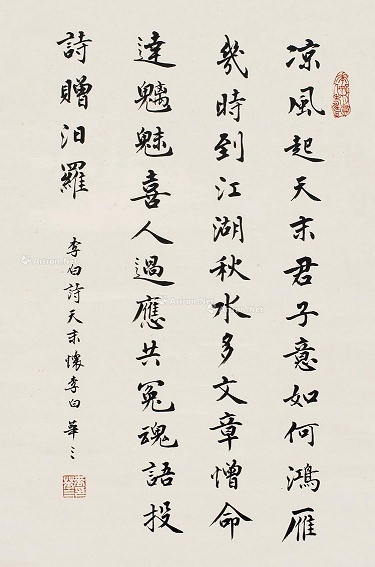 凉風起天末君子意如何鴻雁
幾時到江湖秋水多文章憎命
達魑魅喜人過應共冤魂語投
詩贈汨羅
李白詩天末懷李白 華